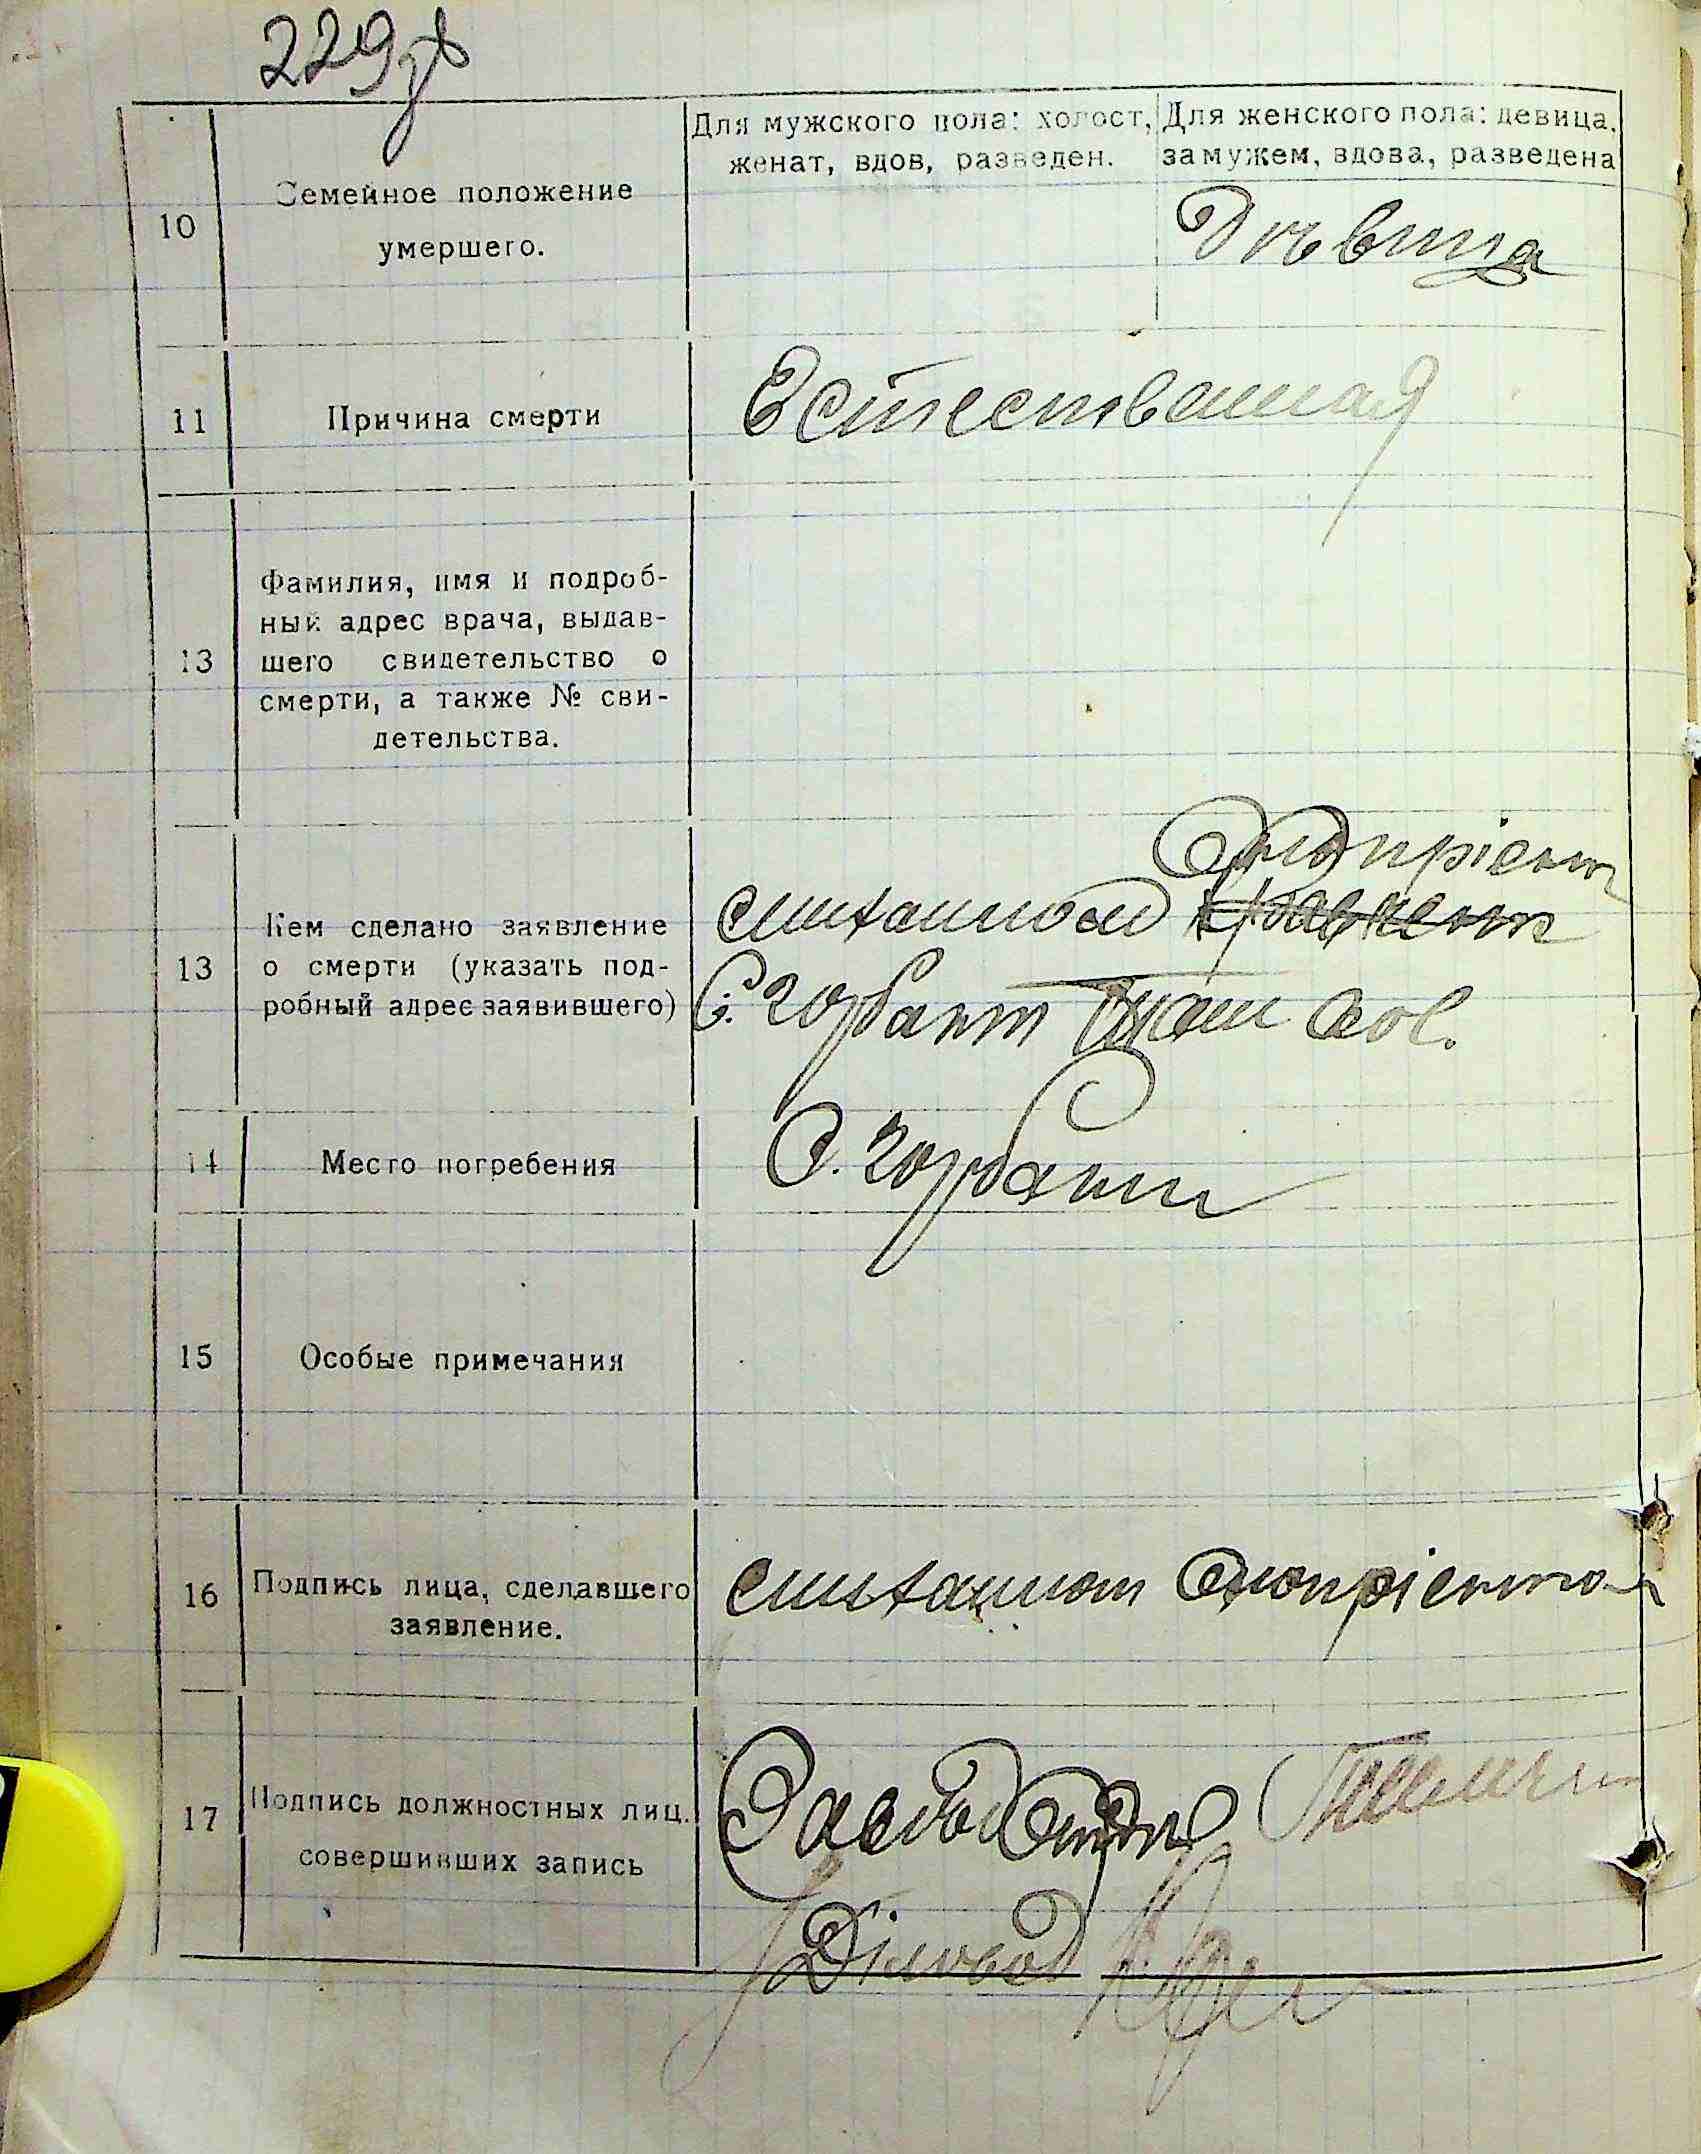 229 зв
Для мужского пола: холост,
женат, вдов, разведен.
Для женского пола: девица,
замужем, вдова, разведена
10
Семейное положение
умершего.
Дѣвица
11
Причина смерти
Естественная
13
Фамилия, имя и подроб-
ный адрес врача, выдав-
шего свидетельство о
смерти, а также № сви-
детельства.
13
Кем сделано заявление
о смерти (указать под-
робный адрес заявившего)
С. Горбани
14
Место погребения
С. Горбани
15
Особые примечания
16
Подпись лица, сделавшего
заявление.
17
Подпись должностных лиц.
совершивших запись
Діловод